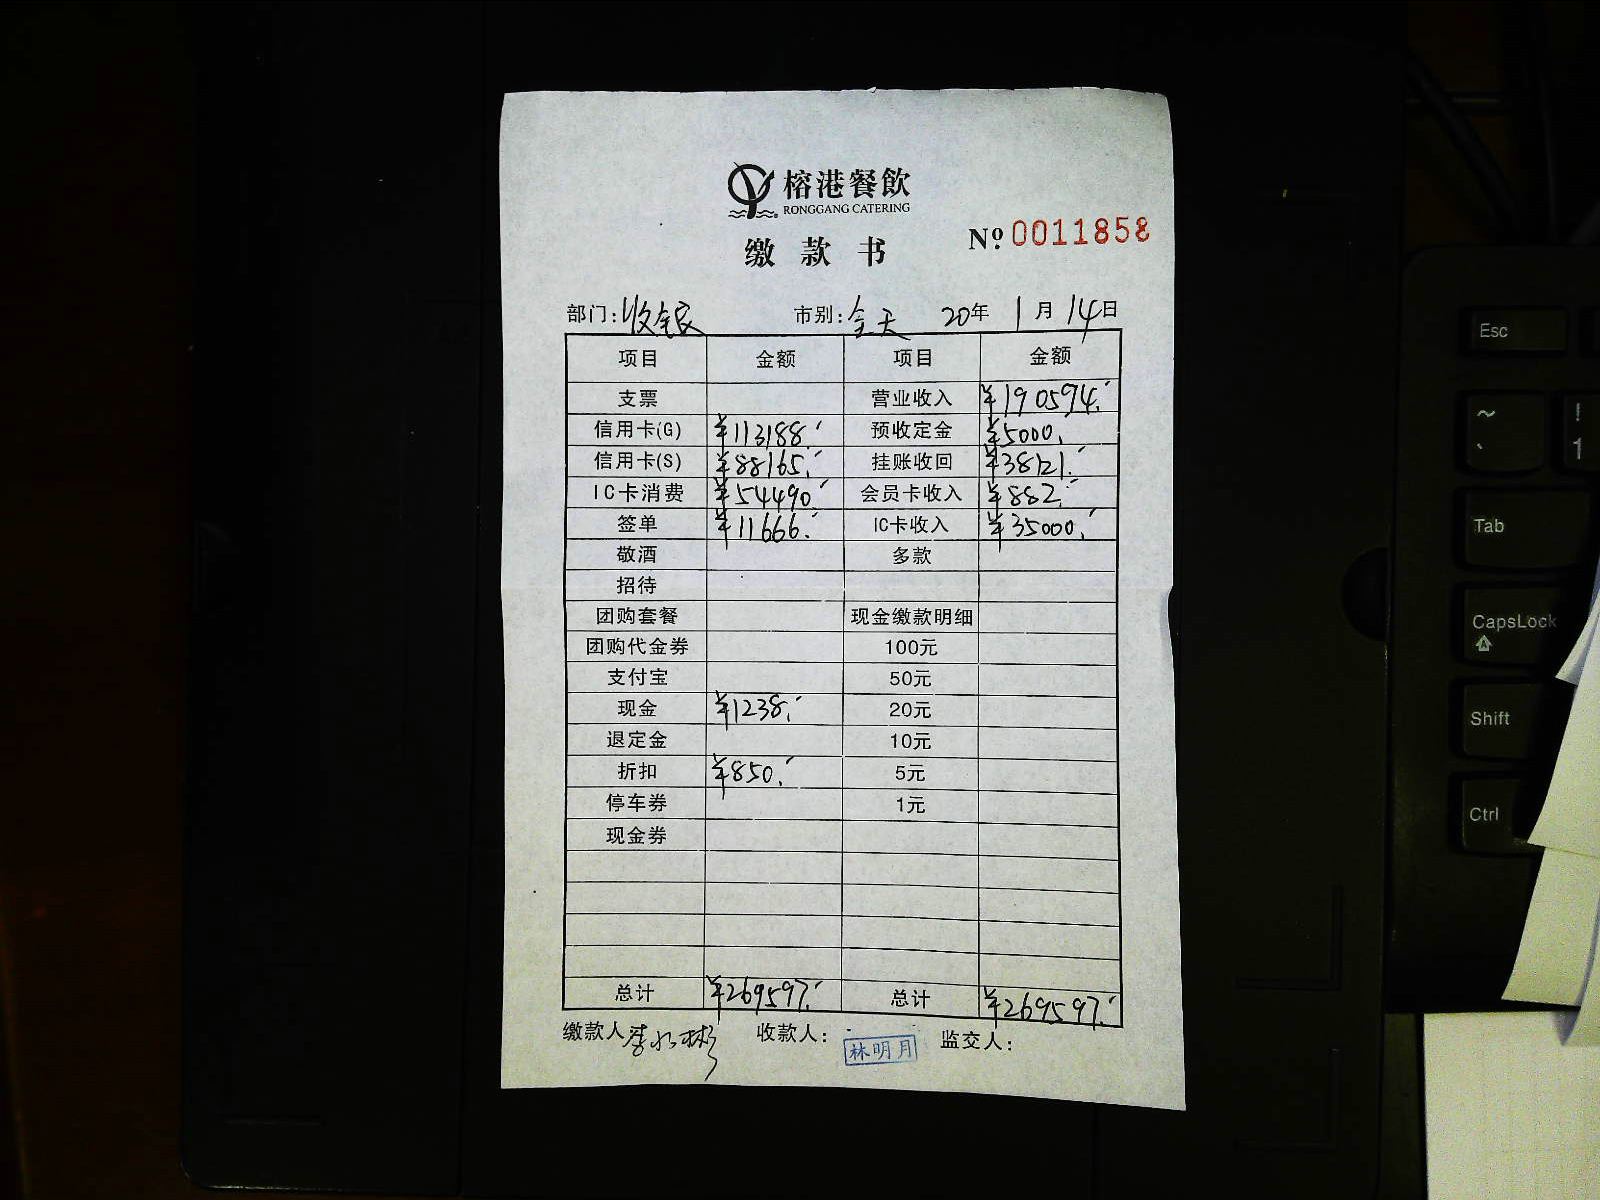 榕港餐飲
RONGGANG CATERING
缴款书
Nº.0011858
部门:收银 市别:全天 20年1月14日
项目 金额 项目 金额
支票 营业收入 ¥190594.-
信用卡(G) ¥113188.- 预收定金 ¥5000.-
信用卡(S) ¥88165.- 挂账收回 ¥38121.-
IC卡消费 ¥54490.- 会员卡收入 ¥882.-
签单 ¥11666.- IC卡收入 ¥35000.-
敬酒 多款
招待
团购套餐 现金缴款明细
团购代金券 100元
支付宝 50元
现金 ¥1238.- 20元
退定金 10元
折扣 ¥850.- 5元
停车券 1元
现金券
总计 ¥269597.- 总计 ¥269597.-
缴款人 李 彬 收款人: 林明月 监交人:
Esc
~ !
` 1
Tab
CapsLock
Shift
Ctrl